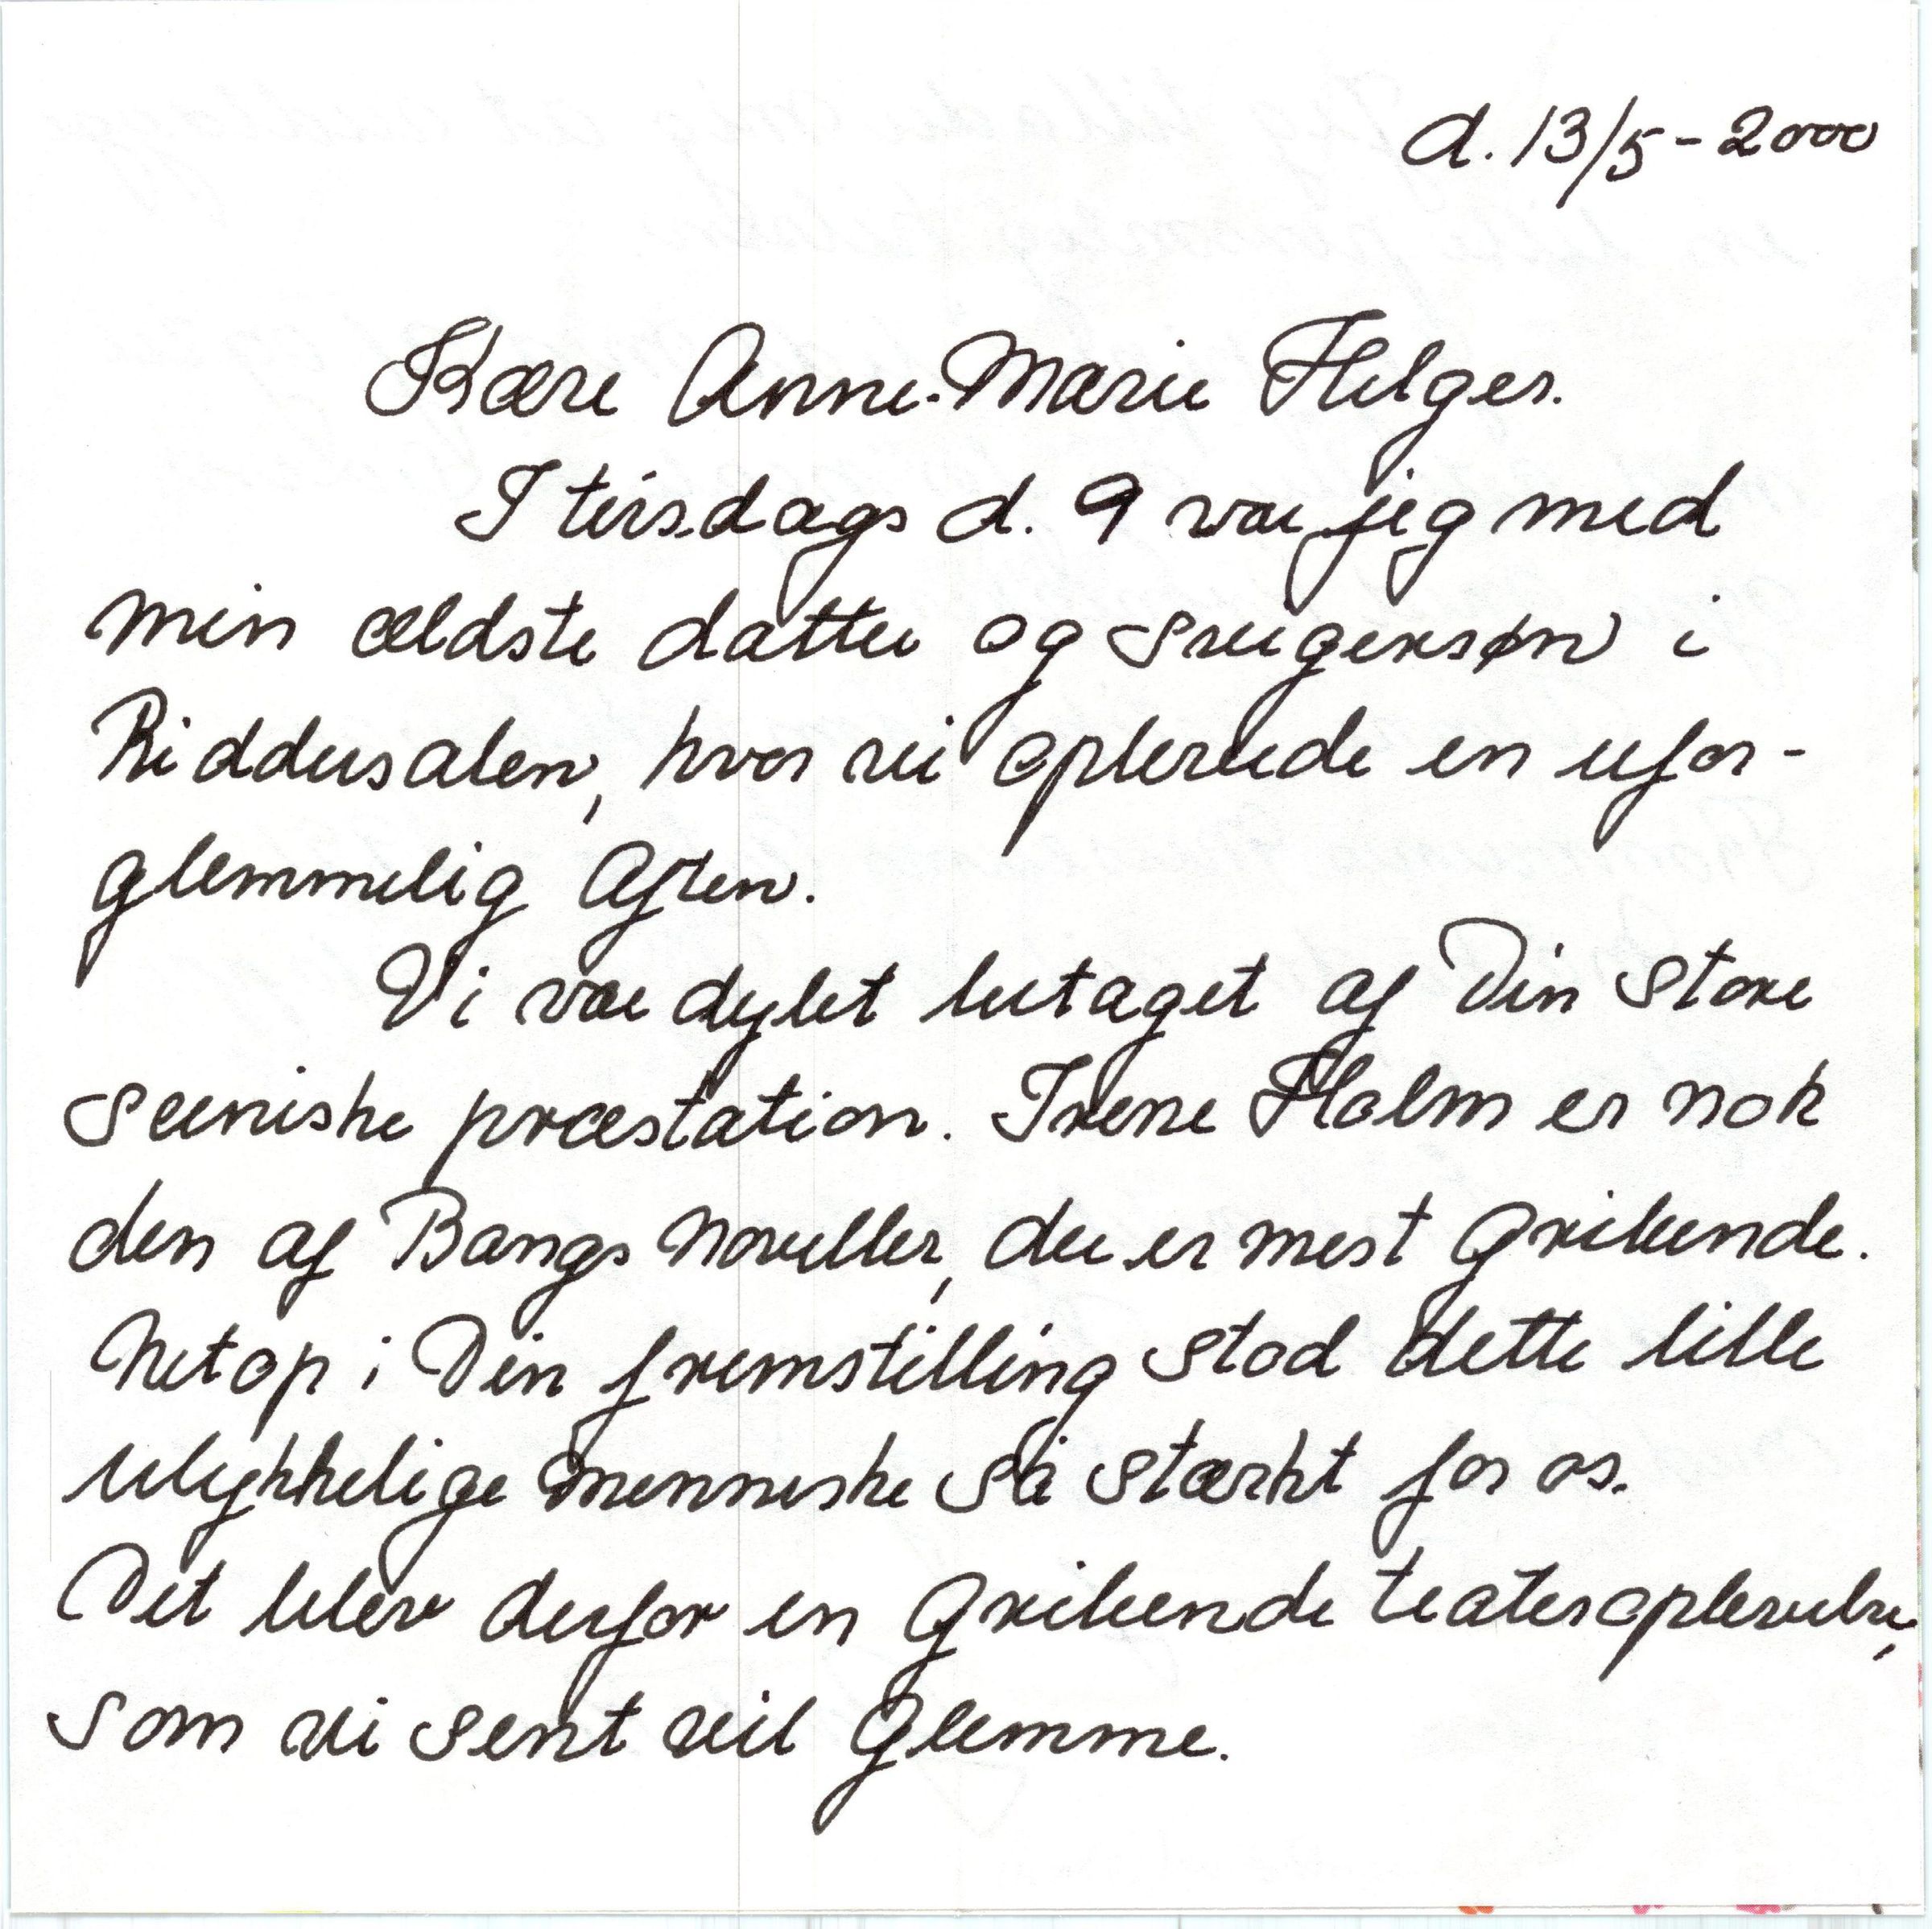 d. 13/5 - 2000
Kære Anne-Marie Helger.
I tirsdags d. 9 var jeg med
min ældste datter og svigersøn i
Riddersalen, hvor vi oplevede en ufor-
glemmelig aften.
Vi var dybt betaget af Din store
sceniske præstation. Irene Holm er nok
den af Bangs noveller, der er mest gribende.
Netop i Din fremstilling stod dette lille
ulykkelige menneske så stærkt for os.
Det blev derfor en gribende teateroplevelse,
som vi sent vil glemme.